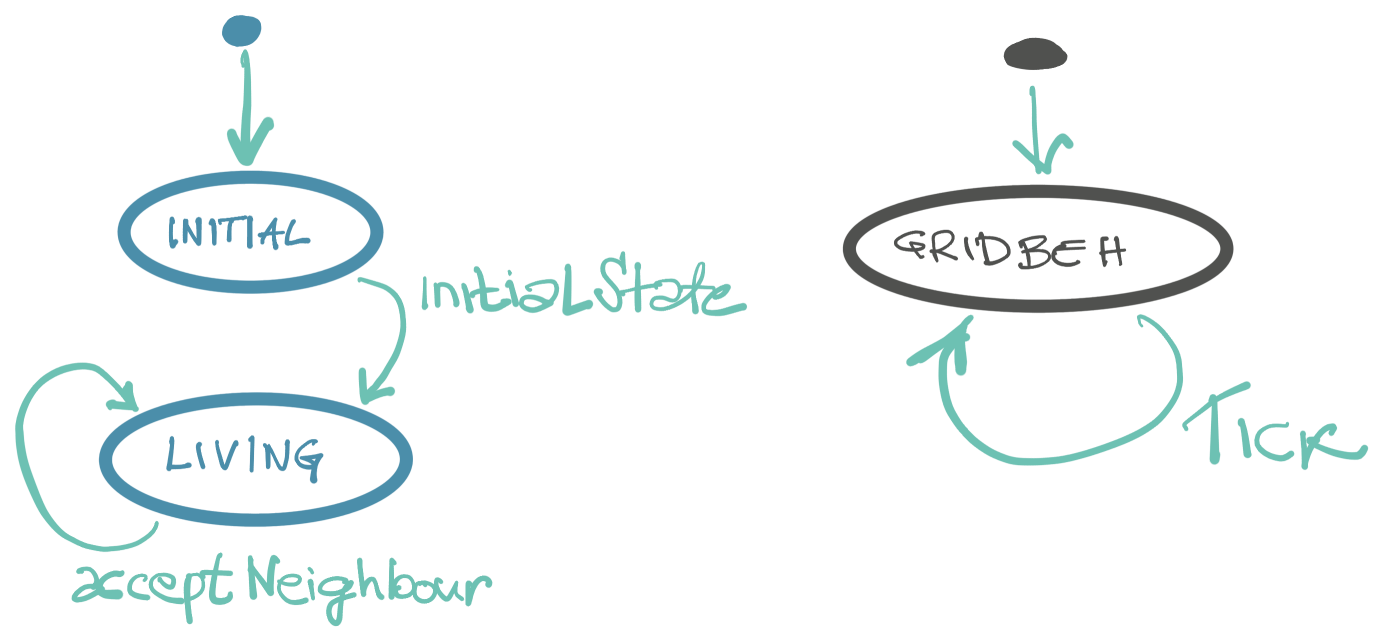 INITIAL
initialState
LIVING
acceptNeighbour
GRIDBEH
TICK